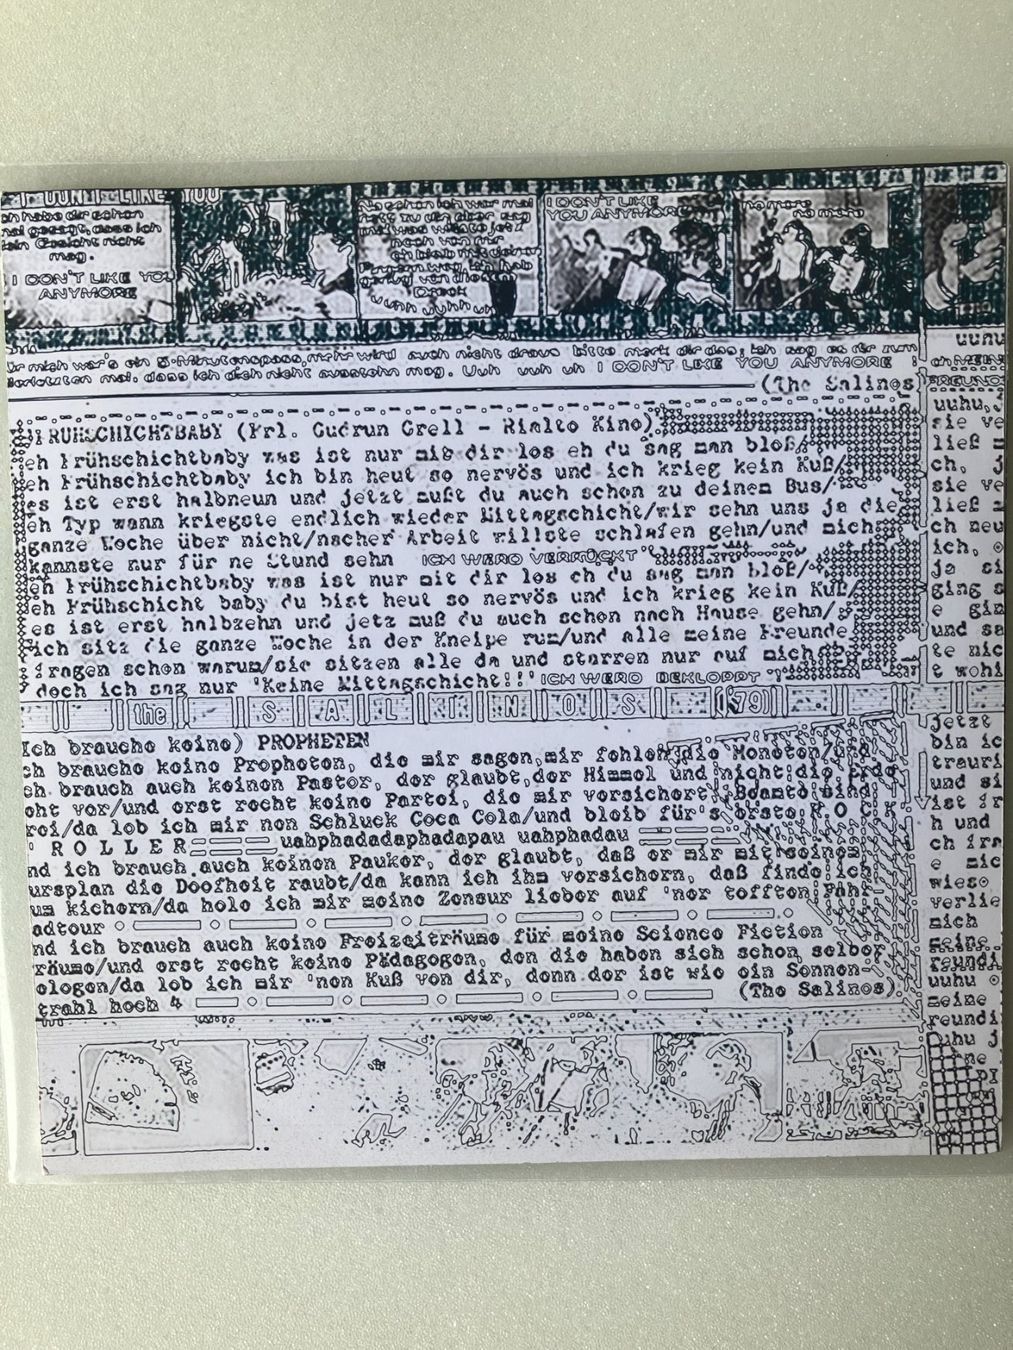 I DON'T LIKE YOU
h habe dir schon
mal gesagt, dass ich
dein Gesicht nicht
mag.
I DON'T LIKE YOU
ANYMORE
I DON'T LIKE
YOU ANYMORE
no more
no more
ür mich war's ein 3-Minutenspass, mehr wird auch nicht draus bitte merk dir das, ich sag es dir zum
letzten mal, dass ich dich nicht ausstehn mag. Uuh uuh uh I DON'T LIKE YOU ANYMORE !
(The Salinos)
FRÜHSCHICHTBABY (Frl. Gudrun Grell - Rialto Kino)
eh Frühschichtbaby was ist nur mit dir los eh du sag man bloß/
eh Frühschichtbaby ich bin heut so nervös und ich krieg kein Kuß/
es ist erst halbneun und jetzt mußt du auch schon zu deinem Bus/
eh Typ wann kriegste endlich wieder Mittagschicht/wir sehn uns ja die
ganze Woche über nicht/nacher Arbeit willste schlafen gehn/und mich
kannste nur für ne Stund sehn ICH WERD VERRÜCKT
eh Frühschichtbaby was ist nur mit dir los eh du sag man bloß/
eh Frühschicht baby du bist heut so nervös und ich krieg kein Kuß/
es ist erst halbzehn und jetz muß du auch schon nach Hause gehn/
ich sitz die ganze Woche in der Kneipe rum/und alle meine Freunde
fragen schon warum/sie sitzen alle da und starren nur auf mich
doch ich sag nur 'Keine Mittagschicht!!' ICH WERD BEKLOPPT !
the SALINOS ('79)
Ich brauche keine) PROPHETEN
ch brauche keine Propheten, die mir sagen, mir fehlen die Moneten/und
ch brauch auch keinen Pastor, der glaubt, der Himmel und nicht die Erde
eht vor/und erst recht keine Partei, die mir versichert, Beamte sind
rei/da lob ich mir nen Schluck Coca Cola/und bleib für's erste R O C K
' R O L L E R uahphadadaphadapau uahphadau
nd ich brauch auch keinen Pauker, der glaubt, daß er mir mit seinem
ursplan die Doofheit raubt/da kann ich ihm versichern, daß finde ich
um kichern/da hole ich mir meine Zensur lieber auf 'ner tofften Fah
adtour
nd ich brauch auch keine Freizeiträume für meine Science Fiction
räume/und erst recht keine Pädagogen, den die haben sich schon selbe
ologen/da lob ich mir 'nen Kuß von dir, denn der ist wie ein Sonnen-
strahl hoch 4 (The Salinos)
uuhu
uuhu, j
sie ve
ließ m
ch, j
sie ve
ließ m
ch neu
ich,
ja si
ging s
e gin
und sa
te nic
t wohi
jetzt
bin ic
trauri
und si
ist ir
h und
ch irr
e mic
wieso
verlie
mich
meine
reundi
uuhu
meine
reundi
uuhu j